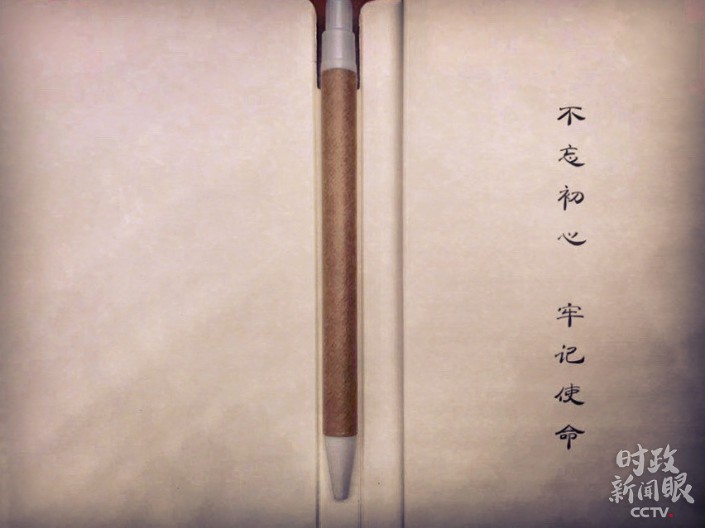 不忘初心 牢记使命
时政
新闻眼
CCTV.